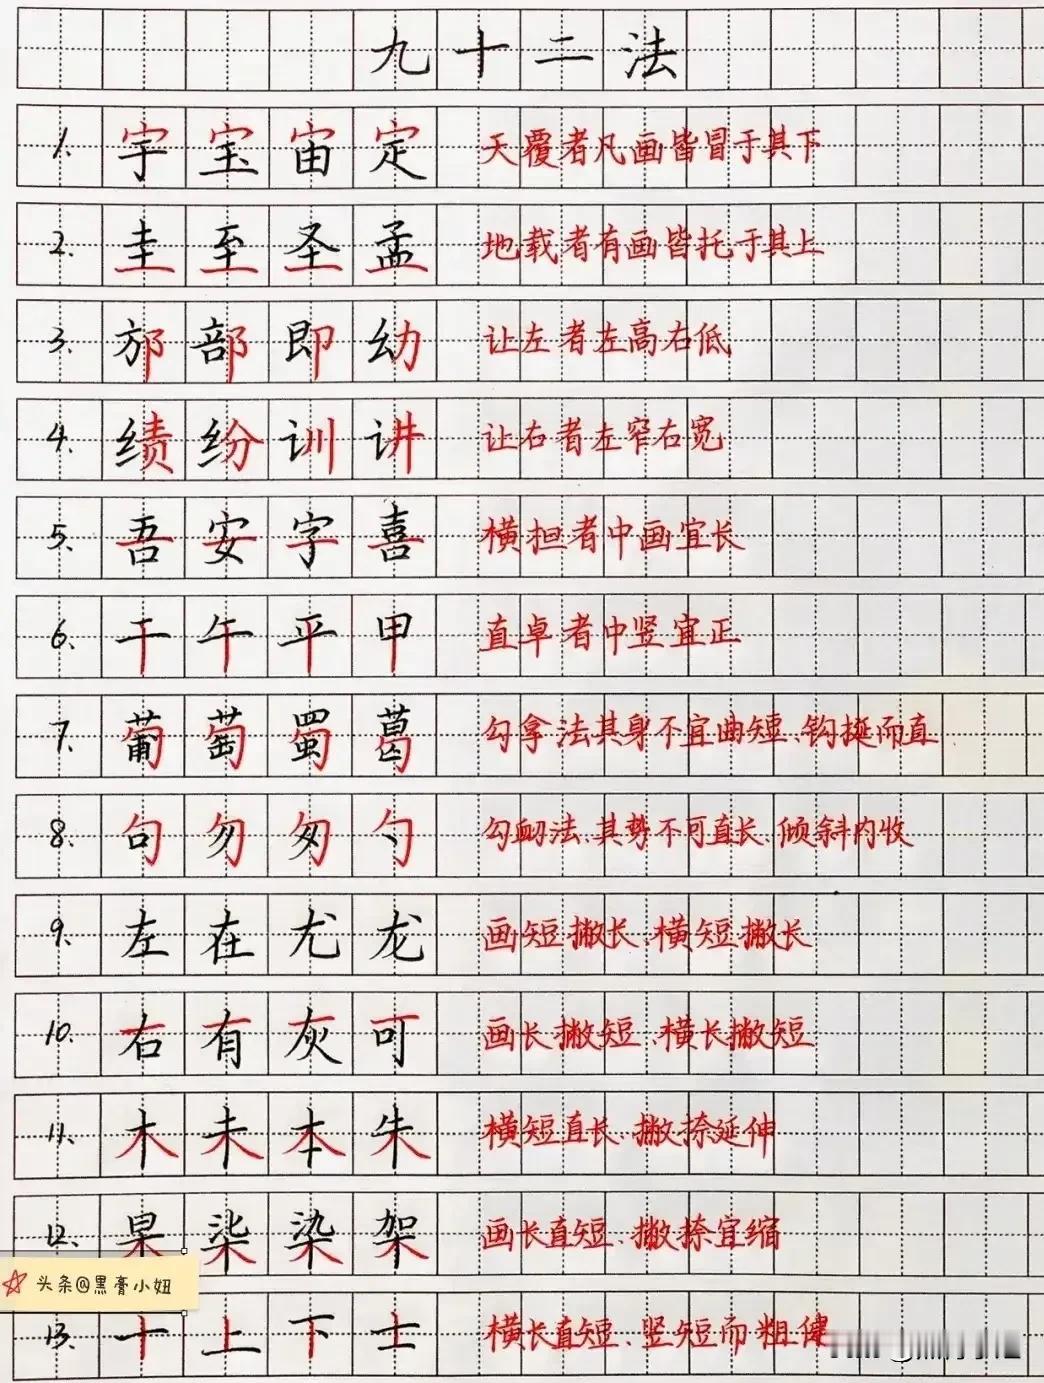 九十二法
1. 宇宝宙定 天覆者凡画皆冒于其下
2. 圭至圣孟 地载者有画皆托于其上
3. 邡部即幼 让左者左高右低
4. 绩纷训讲 让右者左窄右宽
5. 吾安字喜 横担者中画宜长
6. 干午平甲 直卓者中竖宜正
7. 葡萄蜀葛 勾拿法其身不宜曲短、钩挺而直
8. 句勿匆勺 勾衄法、其势不可直长、倾斜内收
9. 左在尤龙 画短撇长、横短撇长
10. 右有灰可 画长撇短、横长撇短
11. 木未本朱 横短直长、撇捺延伸
12. 杲柒染架 画长直短、撇捺宜缩
头条@黑膏小妞
13. 十上下士 横长直短、竖短而粗健